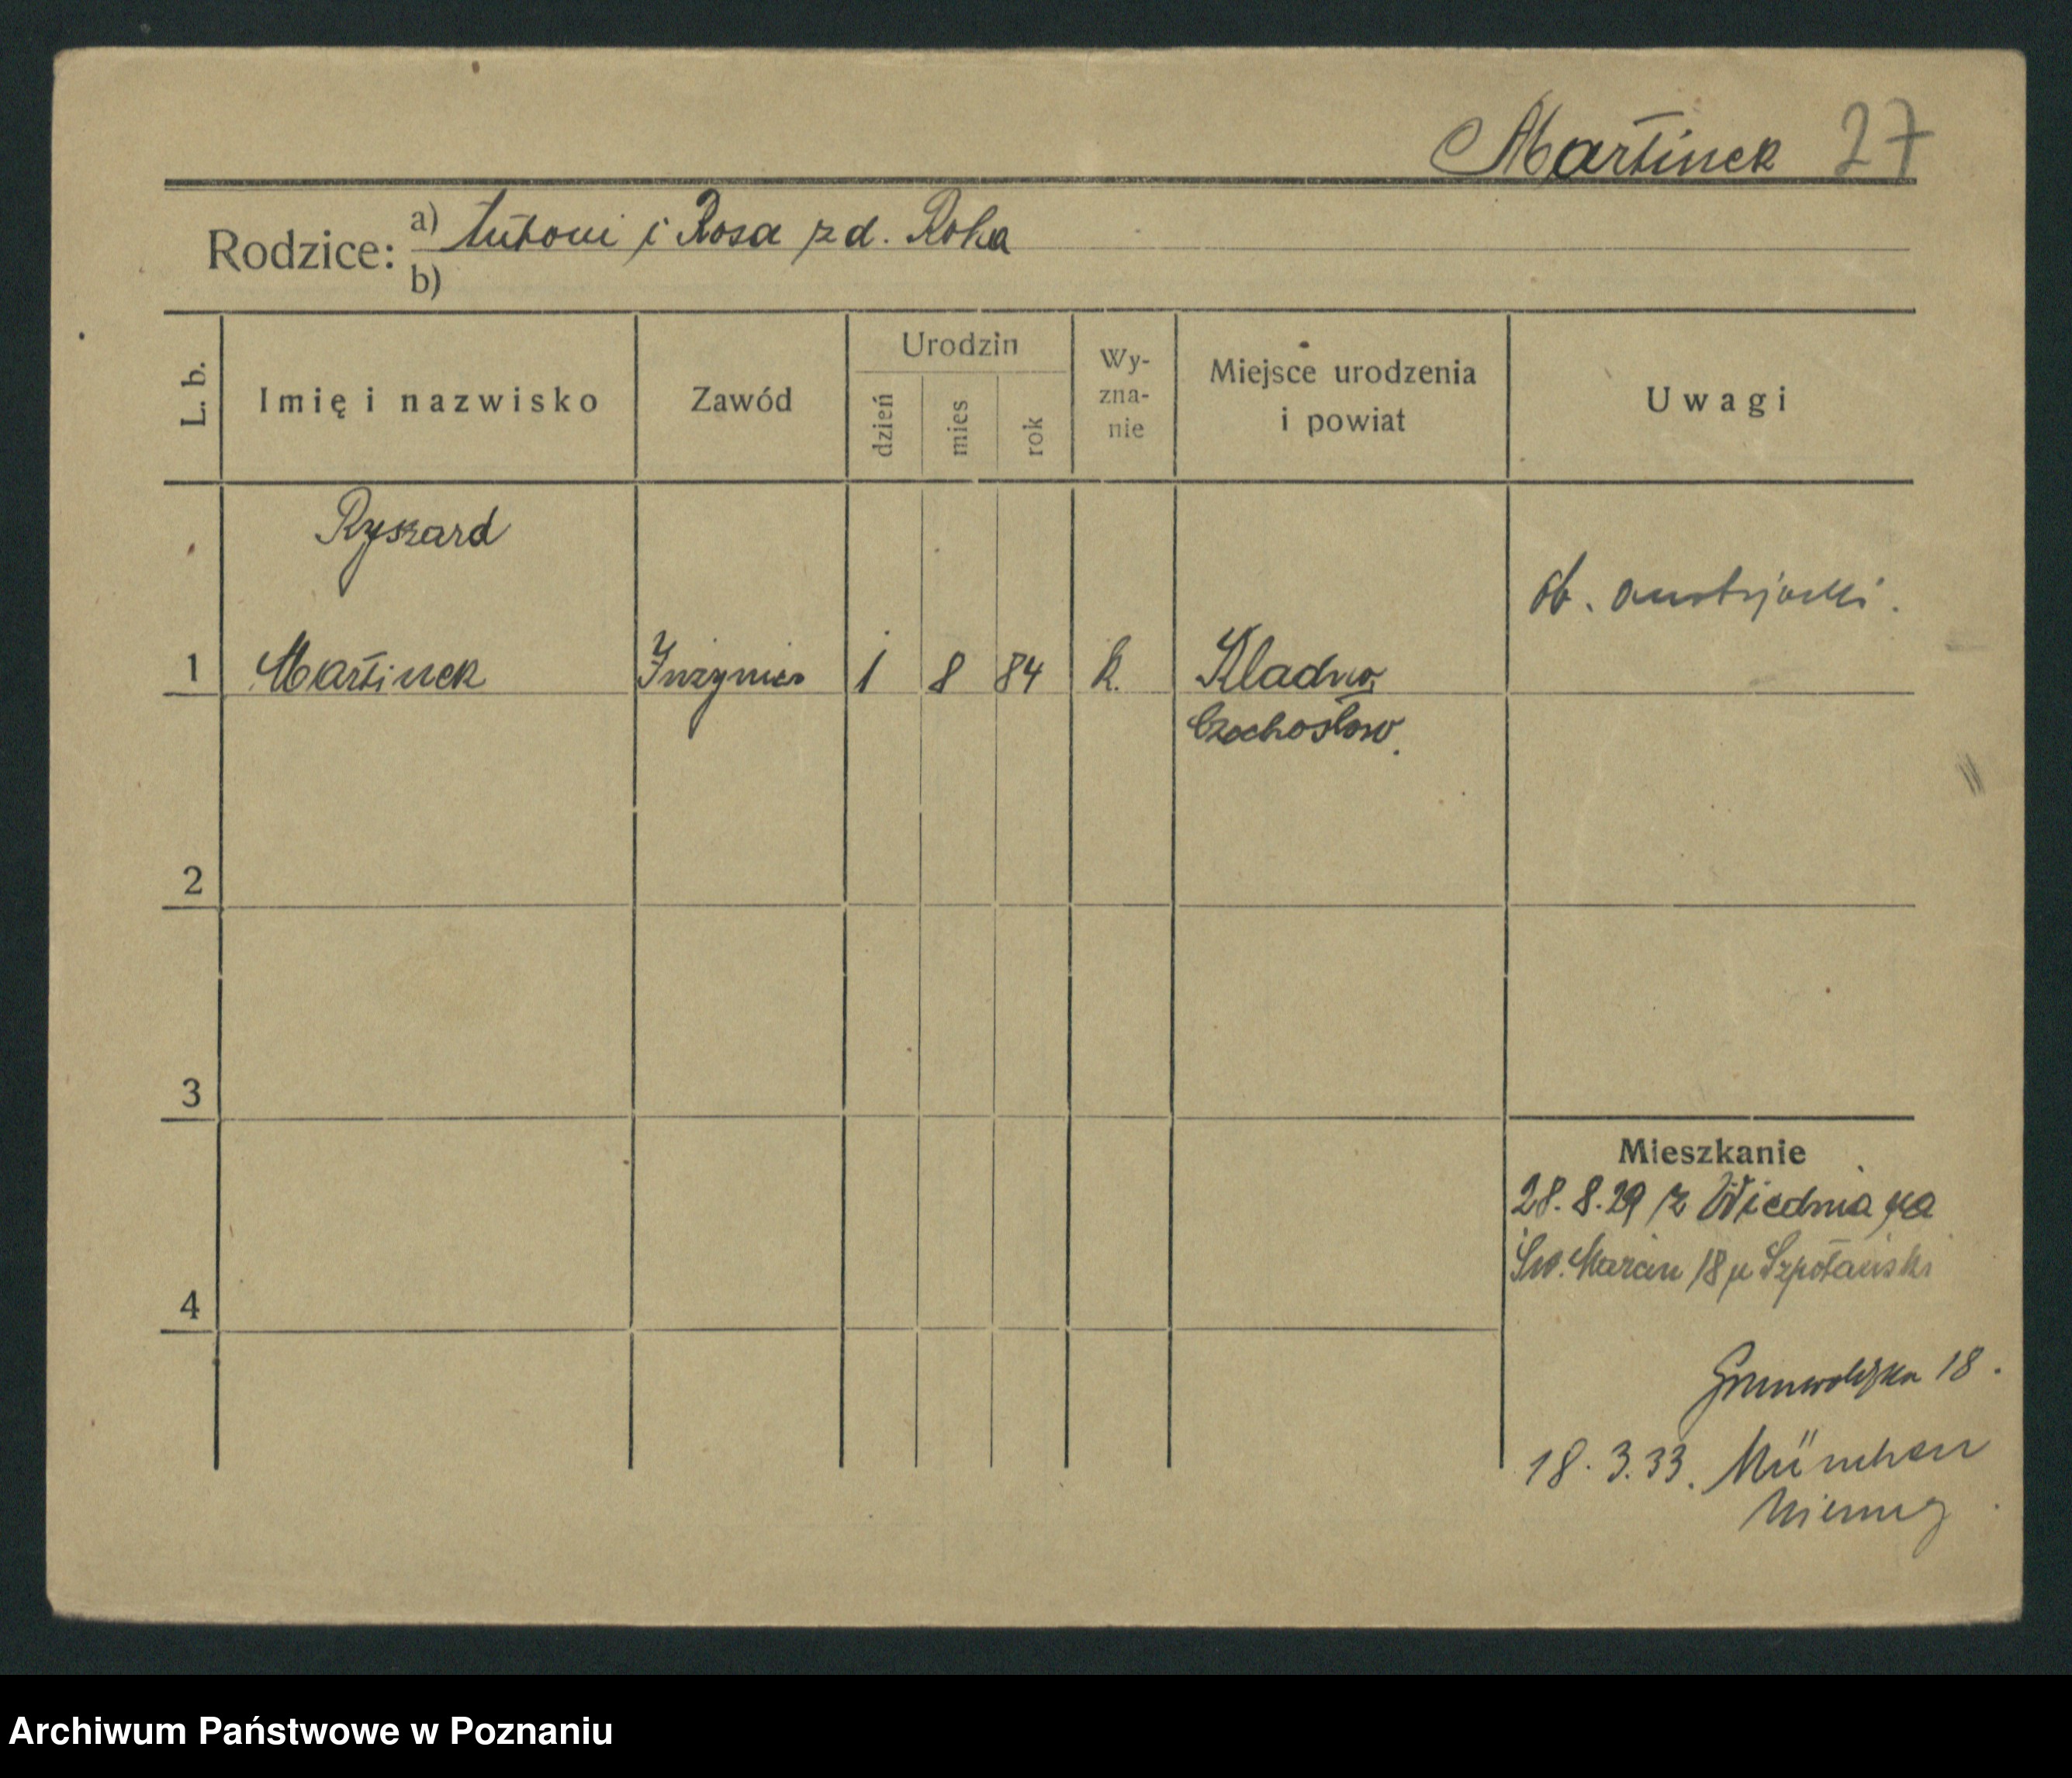 Martinek 27
Rodzice: a) Antoni i Rosa z d. Roha
b)
L. b.
Imię i nazwisko
Zawód
Urodzin
dzień
mies
rok
Wy-
zna-
nie
Miejsce urodzenia
i powiat
Uwagi
Ryszard
ob. austrjacki.
1 Martinek Inżynier 1 8 84 k. Kladno,
Czechosłow.
2
3
4
Mieszkanie
28.8.29 z Wiednia na
Św. Marcin 18 u Szpotański
Grunwaldzka 18.
18.3.33. München
Niemcy
Archiwum Państwowe w Poznaniu